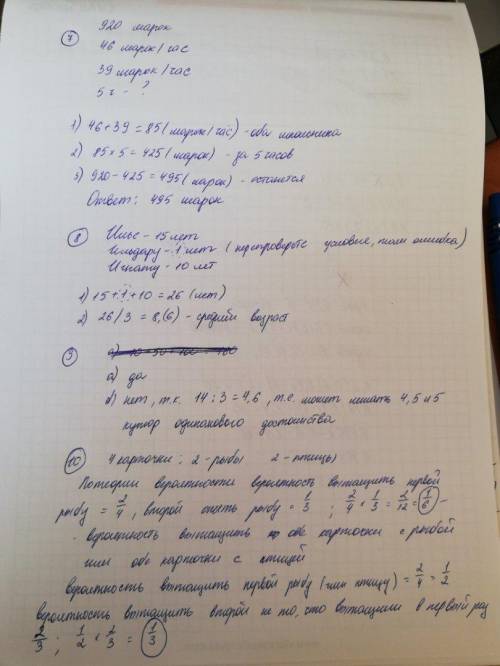 7 920 марок
46 марок/час
39 марок/час
5 ч - ?
1) 46+39=85 (марок/час) - оба школьника
2) 85×5=425 (марок) - за 5 часов
3) 920-425=495 (марок) - останется
Ответ: 495 марок
8 Илье - 15 лет
Ильдару - 1 лет (перепроверьте условие, там ошибка)
Игнату - 10 лет
1) 15+1+10=26 (лет)
2) 26/3=8,(6) - средний возраст
9
а) да
б) нет, т.к. 14:3=4,6, т.е. может лежать 4,5 и 5
купюр одинакового достоинства
10 4 карточки: 2-рыбы 2-птицы
По теории вероятности вероятность вытащить первой
рыбу = 2/4, второй опять рыбу = 1/3 ; 2/4 × 1/3 = 2/12 = 1/6 -
- вероятность вытащить обе карточки с рыбой
или обе карточки с птицей
вероятность вытащить первой рыбу (или птицу) = 2/4 = 1/2
вероятность вытащить второй не то, что вытащили в первый раз
2/3 ; 1/2 × 2/3 = 1/3